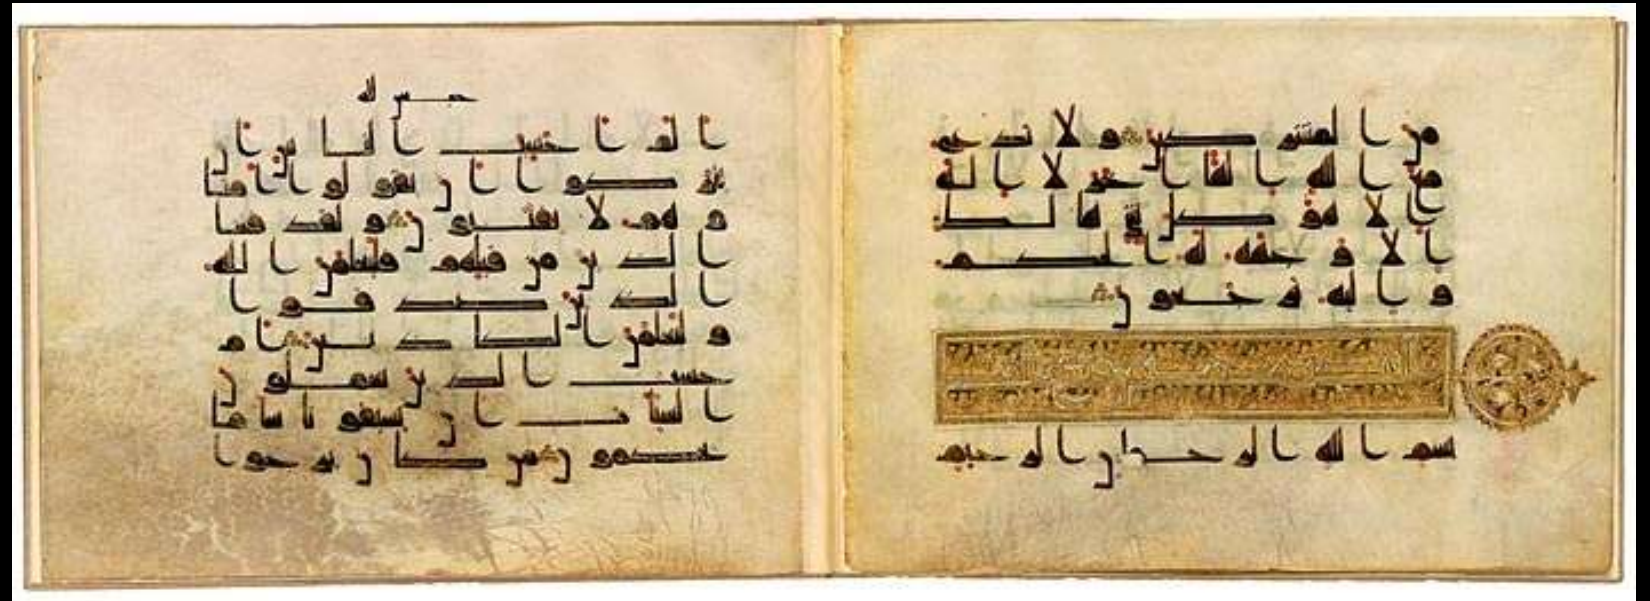 من المشركين ولا تدع
مع الله الها اخر لا اله
الا هو كل شى هالك
الا وجهه له الحكم
واليه ترجعون
بسم الله الرحمن الرحيم
حبس لله
الم احسب الناس ان
يتركوا ان يقولوا امنا
وهم لا يفتنون ولقد فتنا
الذين من قبلهم فليعلمن الله
الذين صدقوا
وليعلمن الكذبين ام
حسب الذين يعملون
السيات ان يسبقونا سا ما
يحكمون من كان يرجوا